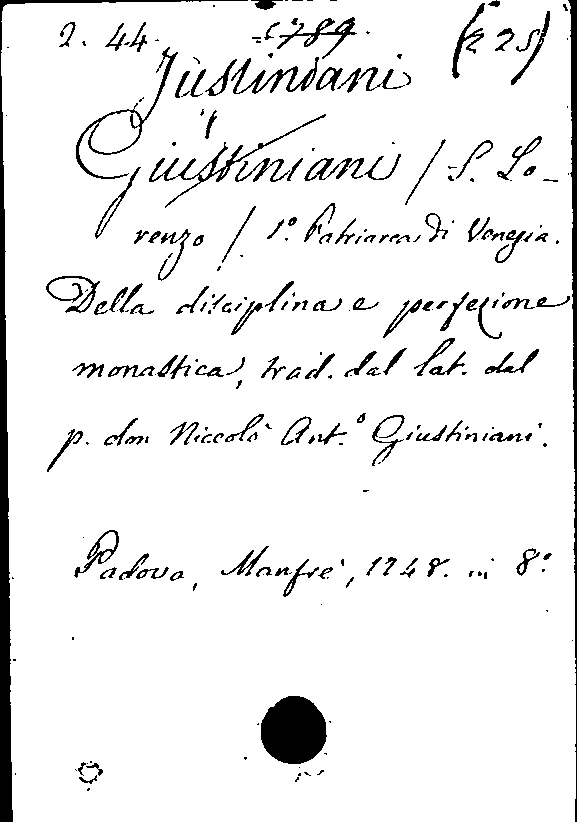 2. 44. 5789. (225)
Justiniani
Giustiniani / S. Lo-
renzo / 1.º Patriarca di Venezia.
Della disciplina e perfezione
monastica, trad. dal lat. dal
p. don Niccolò Ant.º Giustiniani.
Padova, Manfrè, 1748. in 8.º